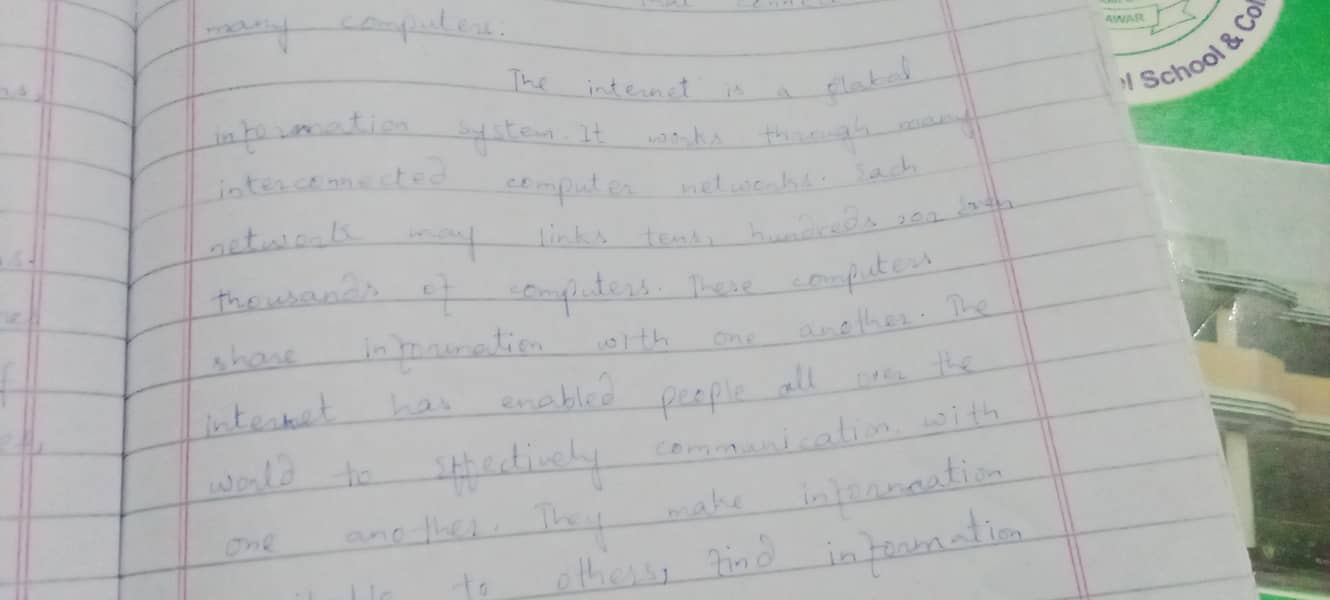 many computers.
The internet is a glabal
information system. It works through many
interconnected computer networks. Each
network may links tens, hundreds
thousands of computers. These computers
share information with one another. The
internet has enabled people all over the
world to effectively communication with
one another. They make information
to others, find information
AWAR
School & Col